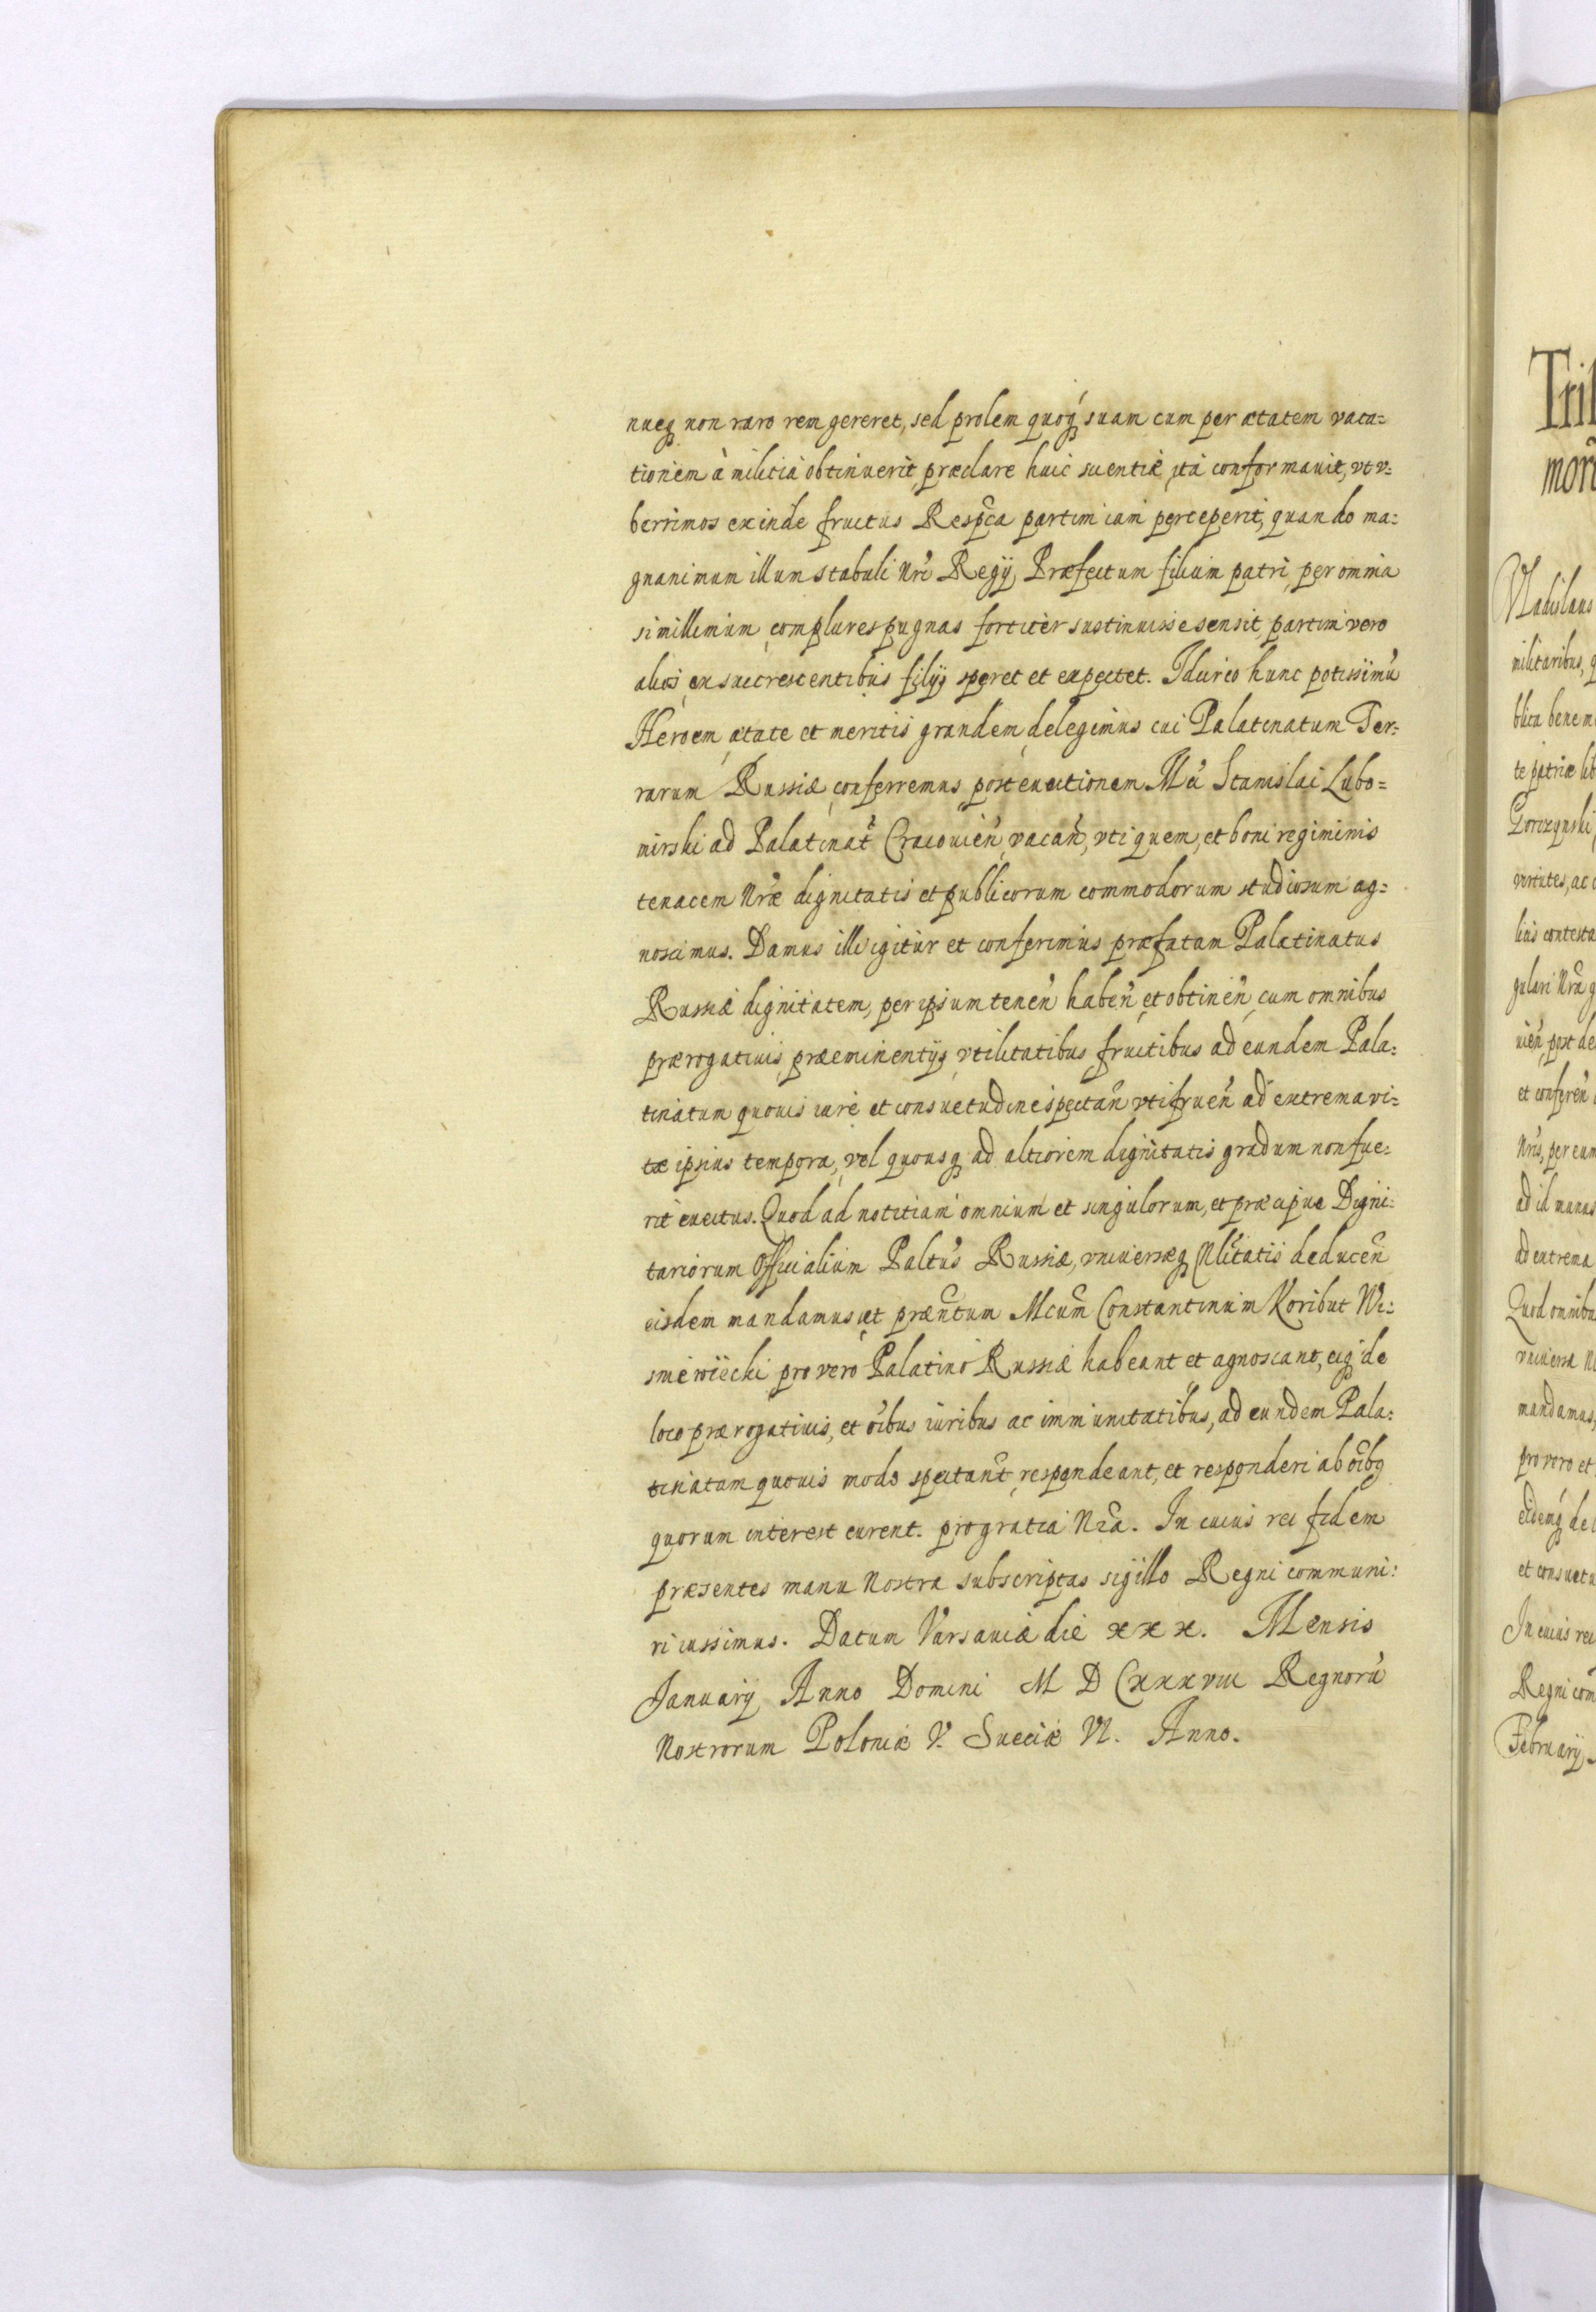 nueq non raro rem gereret, sed prolem quoq suam cum per ætatem vaca=
tionem à militia obtinuerit, præclare huic scientiæ ita conformauit, vt v=
berrimos exinde fructus Respca partim iam perceperit, quando ma=
gnanimum illum stabuli Nri Regij Præfectum filium patri per omnia
simillimum, complures pugnas fortiter sustinuisse sensit, partim vero
alios ex succrescentibus filijs speret et expectet. Idcirco hunc potissimũ
Heroem ætate et meritis grandem delegimus cui Palatinatum Ter=
rarum Russiæ conferremus post euectionem Mci Stanislai Lubo=
mirski ad Palatinat Cracouieñ vacañ, vti quem, et boni regiminis
tenacem Nræ dignitatis et publicorum commodorum studiosum ag=
noscimus. Damus illi igitur et conferimus præfatam Palatinatus
Russiæ dignitatem, per ipsum teneñ habeñ, et obtineñ, cum omnibus
prærogatiuis, præeminentijs, vtilitatibus fructibus ad eundem Pala=
tinatum quouis iure et consuetudine spectañ vti frueñ ad extrema vi=
tæ ipsius tempora, vel quousq ad altiorem dignitatis gradum non fue=
rit euectus. Quod ad notitiam omnium et singulorum, et præcipue Digni=
tariorum Officialium Paltus Russiæ, vniuersæq Nlitatis deduceñ
eisdem mandamus, ut præñtum Mcum Constantinum Koribut Wi=
sniewiecki pro vero Palatino Russiæ habeant et agnoscant, eiq de
loco prærogatiuis, et oibus iuribus ac immunitatibus, ad eundem Pala=
tinatum quouis modo spectant, respondeant, et responderi ab oibq
quorum interest curent. pro gratia Nra. In cuius rei fidem
præsentes manu Nostra subscriptas sigillo Regni communi=
ri iussimus. Datum Varsauiæ die xxx. Mensis
Januarij Anno Domini M D Cxxxviii Regnorũ
Nostrorum Poloniæ V. Sueciæ VI. Anno.
Vladislaus
militaribus,
Gorczynski
virtutes, ac
et conferen
Nris, per eum
ad id munus
ad extrema
Quod omnibu
mandamus,
pro vero et
et consuetu
In cuius rei
Regni com
Februarij